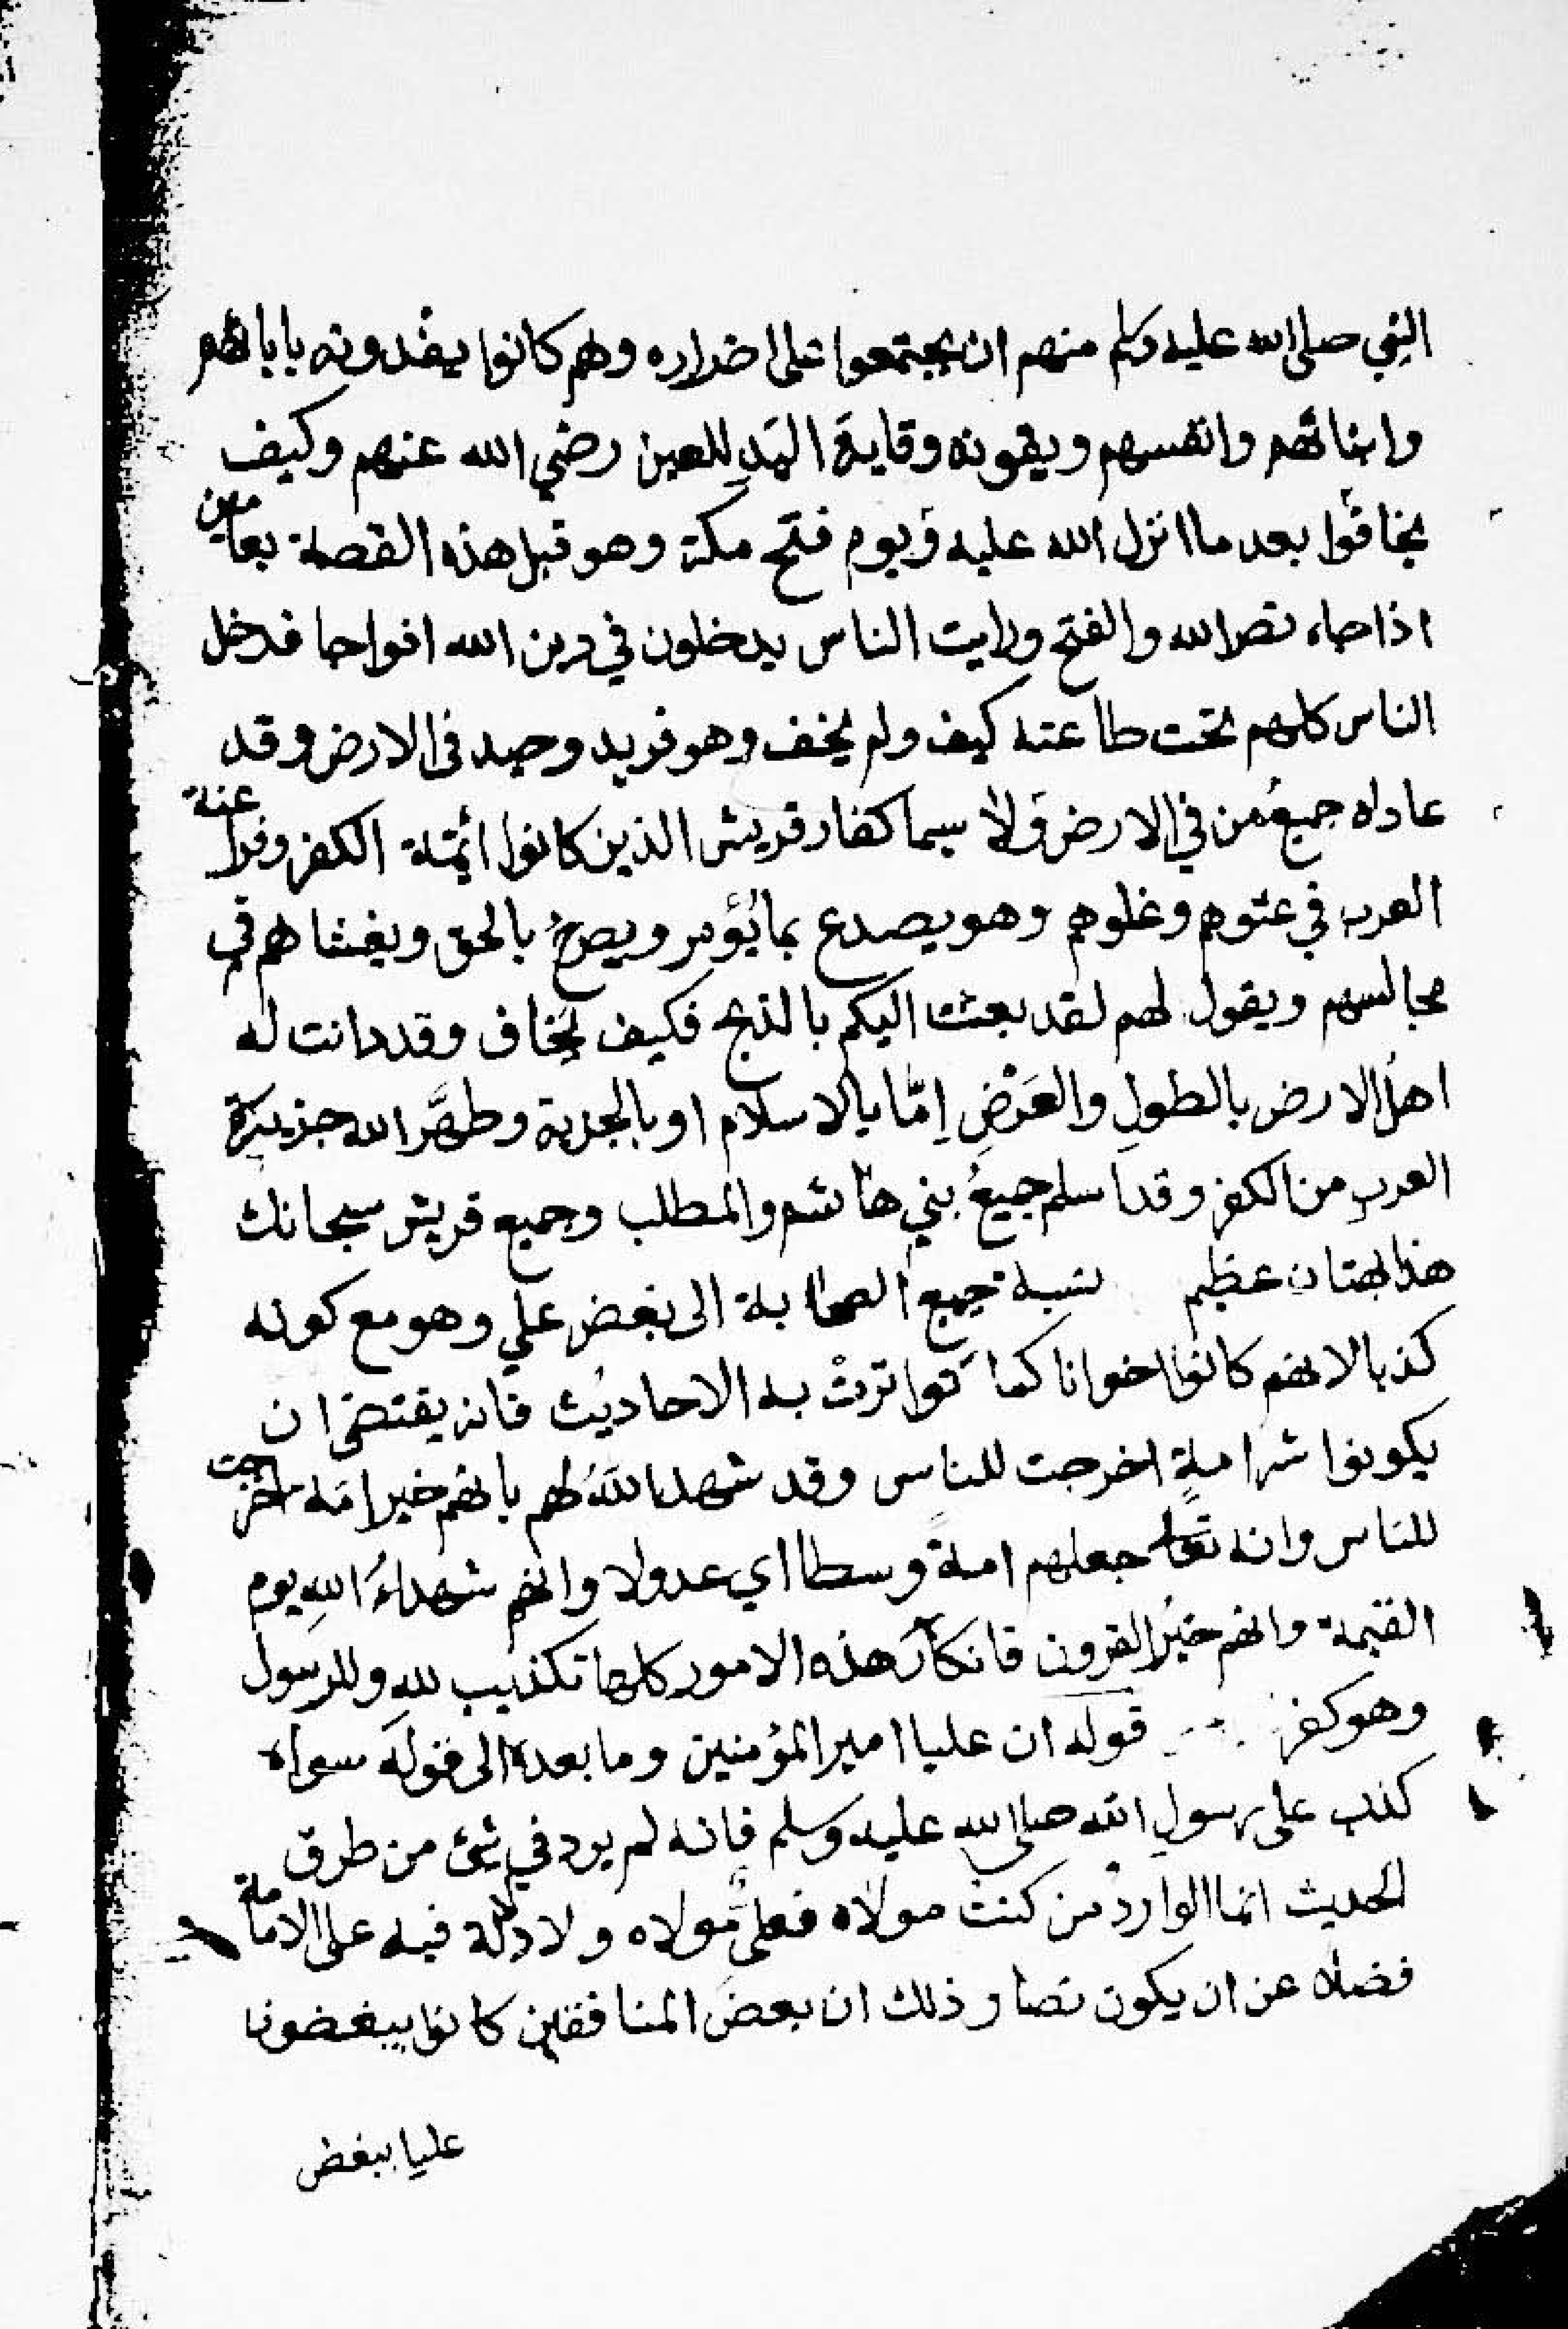 النبي صلى الله عليه وسلم منهم ان يجتمعوا على اضراره وهم كانوا يفدونه بابائهم
وابنائهم وانفسهم ويقونه وقاية اليد للعين رضي الله عنهم وكيف
يخافوا بعد ما انزل الله عليه في يوم فتح مكة وهو قبل هذه القصة بعامين
اذا جاء نصر الله والفتح ورايت الناس يدخلون في دين الله افواجا فدخل
الناس كلهم تحت طاعته كيف ولم يخف وهو فريد وحيد في الارض وقد
عاداه جميعُ من في الارض ولا سيما كفار قريش الذين كانوا أئمة الكفر وفراعنة
العرب في عتوهم وغلوهم وهو يصدع بما يُؤمر ويصرخُ بالحق ويغشاهم في
مجالسهم ويقول لهم لقد بعثت اليكم بالذبح فكيف يخاف وقد دانت له
اهل الارض بالطولِ والعَرْضِ إمّا بالاسلام او بالجزية وطهَّر الله جزيرة
العرب من الكفر وقد اسلم جميعُ بني هاشم والمطلب وجميع قريش سبحانك
هذا بهتان عظيم نسبة جميع الصحابة الى بغض علي وهو مع كونه
كذبا لانهم كانوا اخوانا كما تواترتْ به الاحاديث فانه يقتضى ان
يكونوا شر امةٍ اخرجت للناس وقد شهد اللهُ لهم بانهم خير امة اخرجت
للناس وانه تعالى جعلهم امةً وسطا اي عدولا وانهم شهداءُ اللهِ يوم
القيمة وانهم خيرُ القرون فانكارُ هذه الامور كلها تكذيب لله وللرسول
وهو كفر قوله ان عليا امير المؤمنين وما بعده الى قوله سواه
كذب على رسولِ الله صلى الله عليه وسلم فانه لم يرد في شئ من طرق
الحديث انما الوارد من كنت مولاه فعليٌّ مولاه ولا دلالة فيه على الامامة
فضلا عن ان يكون نصا وذلك ان بعضَ المنافقين كانوا يبغضون
عليا ببغض